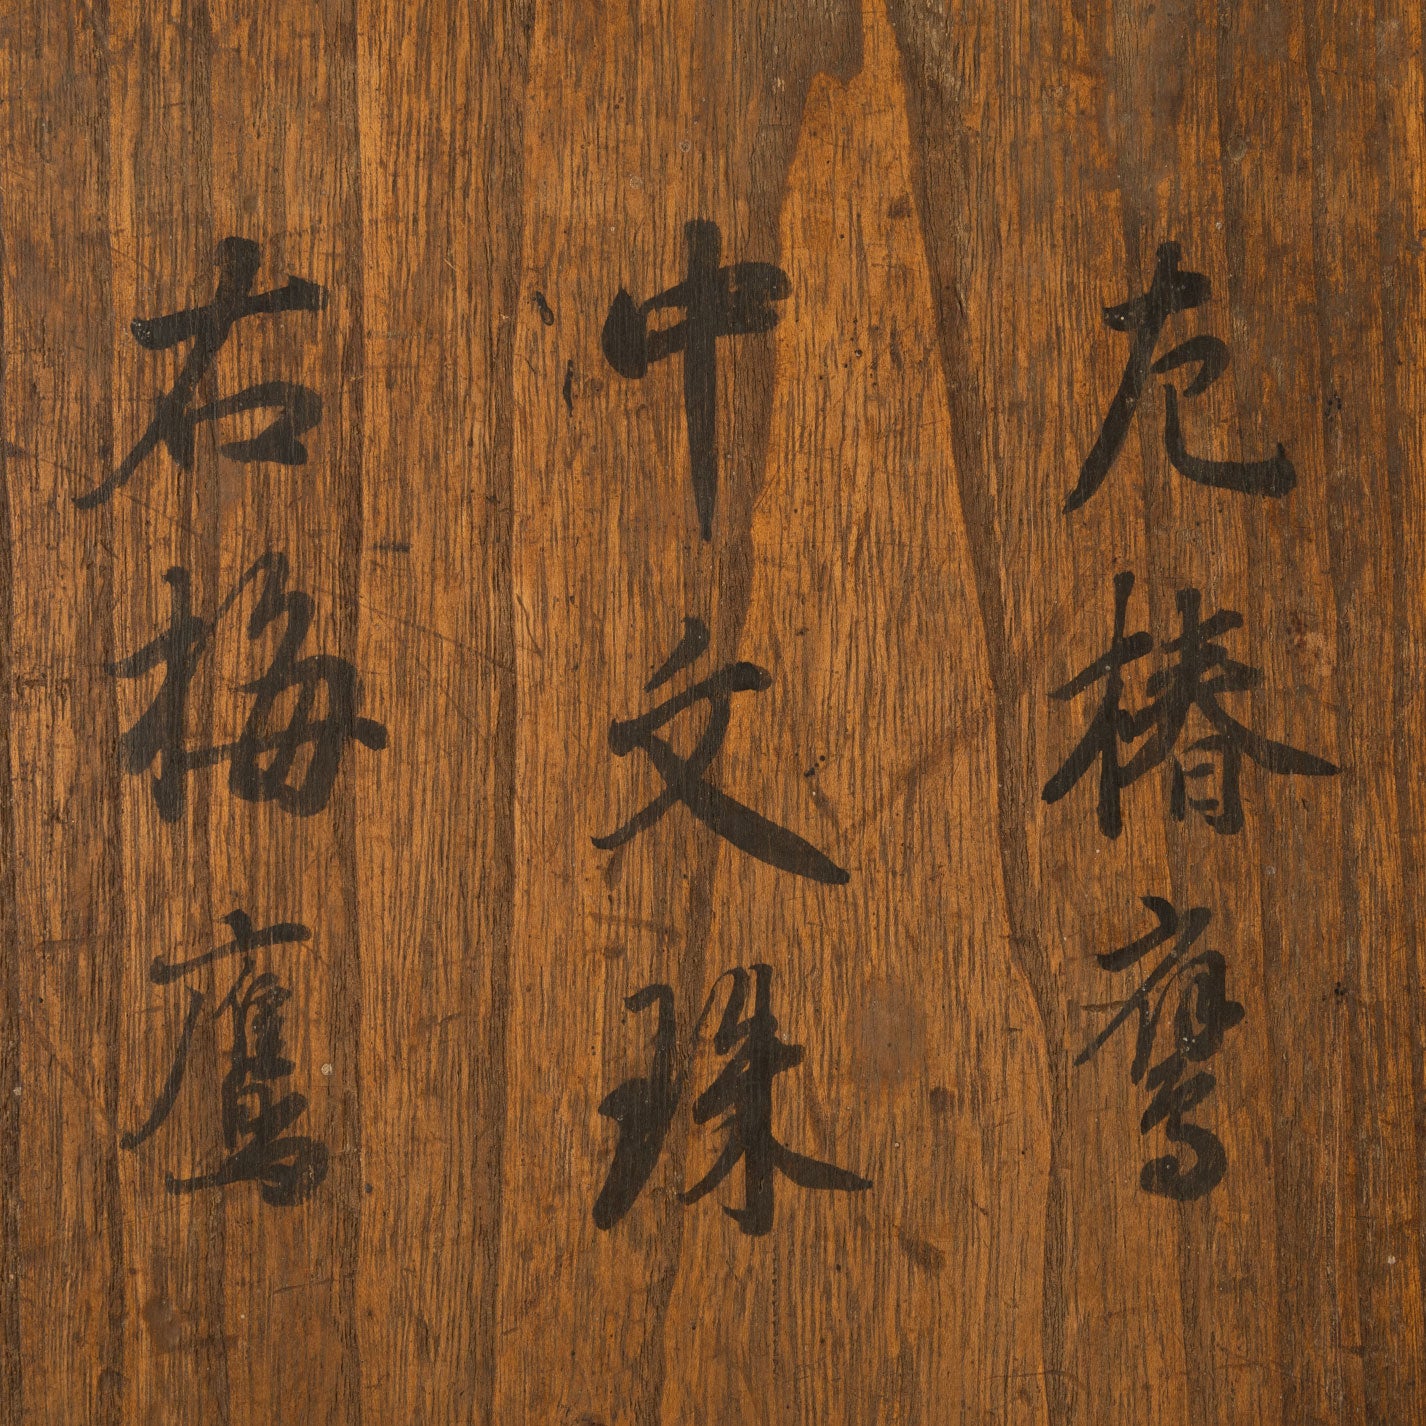 左椿鷹
中文珠
右梅鷹